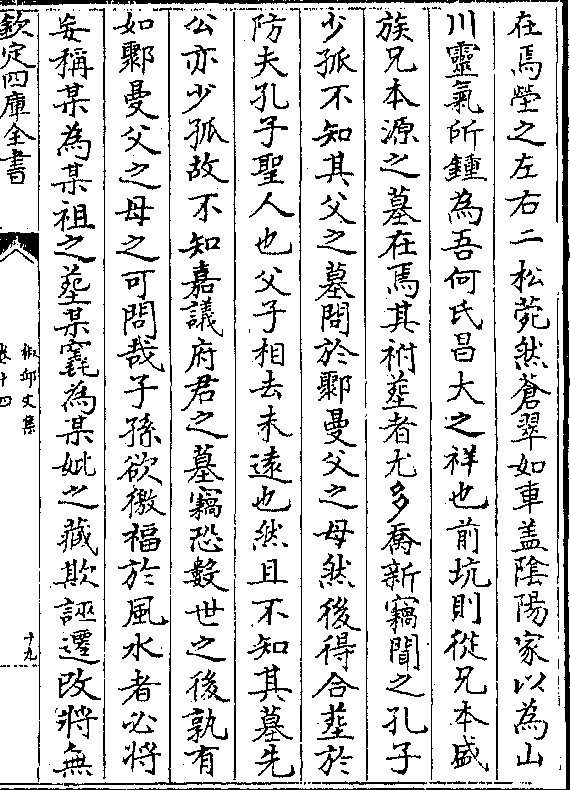 在焉塋之左右二松菀然蒼翠如車盖陰陽家以為山
川靈氣所鍾為吾何氏昌大之祥也前坑則從兄本盛
族兄本源之墓在焉其祔塟者尤多喬新竊聞之孔子
少孤不知其父之墓問於郰曼父之母然後得合塟於
防夫孔子聖人也父子相去未遠也然且不知其墓先
公亦少孤故不知嘉議府君之墓竊恐數世之後孰有
如郰曼父之母之可問哉子孫欲徼福於風水者必將
妄稱某為某祖之塟某窀為某妣之藏欺誣遷改將無
欽定四庫全書
椒邱文集
卷十四
十九